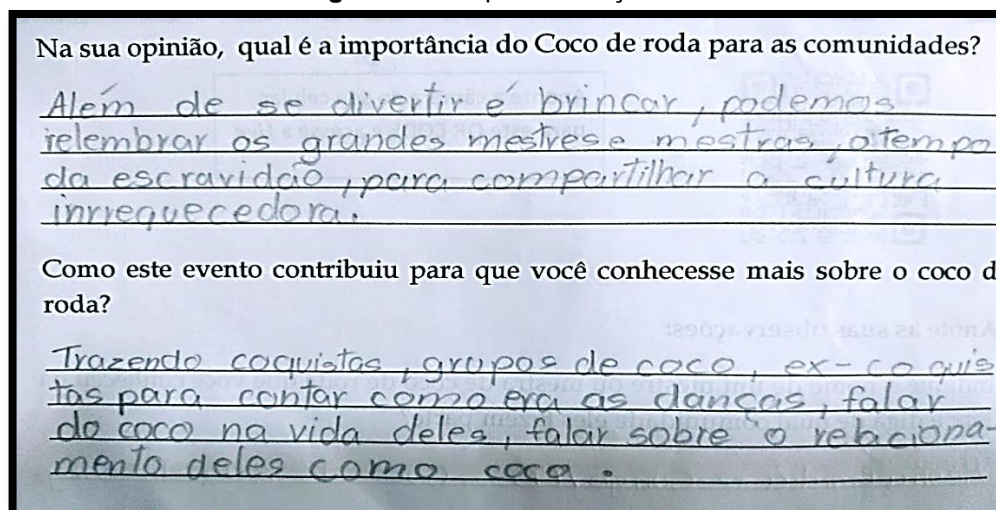 Na sua opinião, qual é a importância do Coco de roda para as comunidades?
Além de se divertir é brincar, podemos
relembrar os grandes mestres e mestras, o tempo
da escravidão, para compartilhar a cultura
inrrequecedora.
Como este evento contribuiu para que você conhecesse mais sobre o coco d
roda?
Trazendo coquistas, grupos de coco, ex-coquis
tas para contar como era as danças, falar
do coco na vida deles, falar sobre o relaciona-
mento deles como coco.